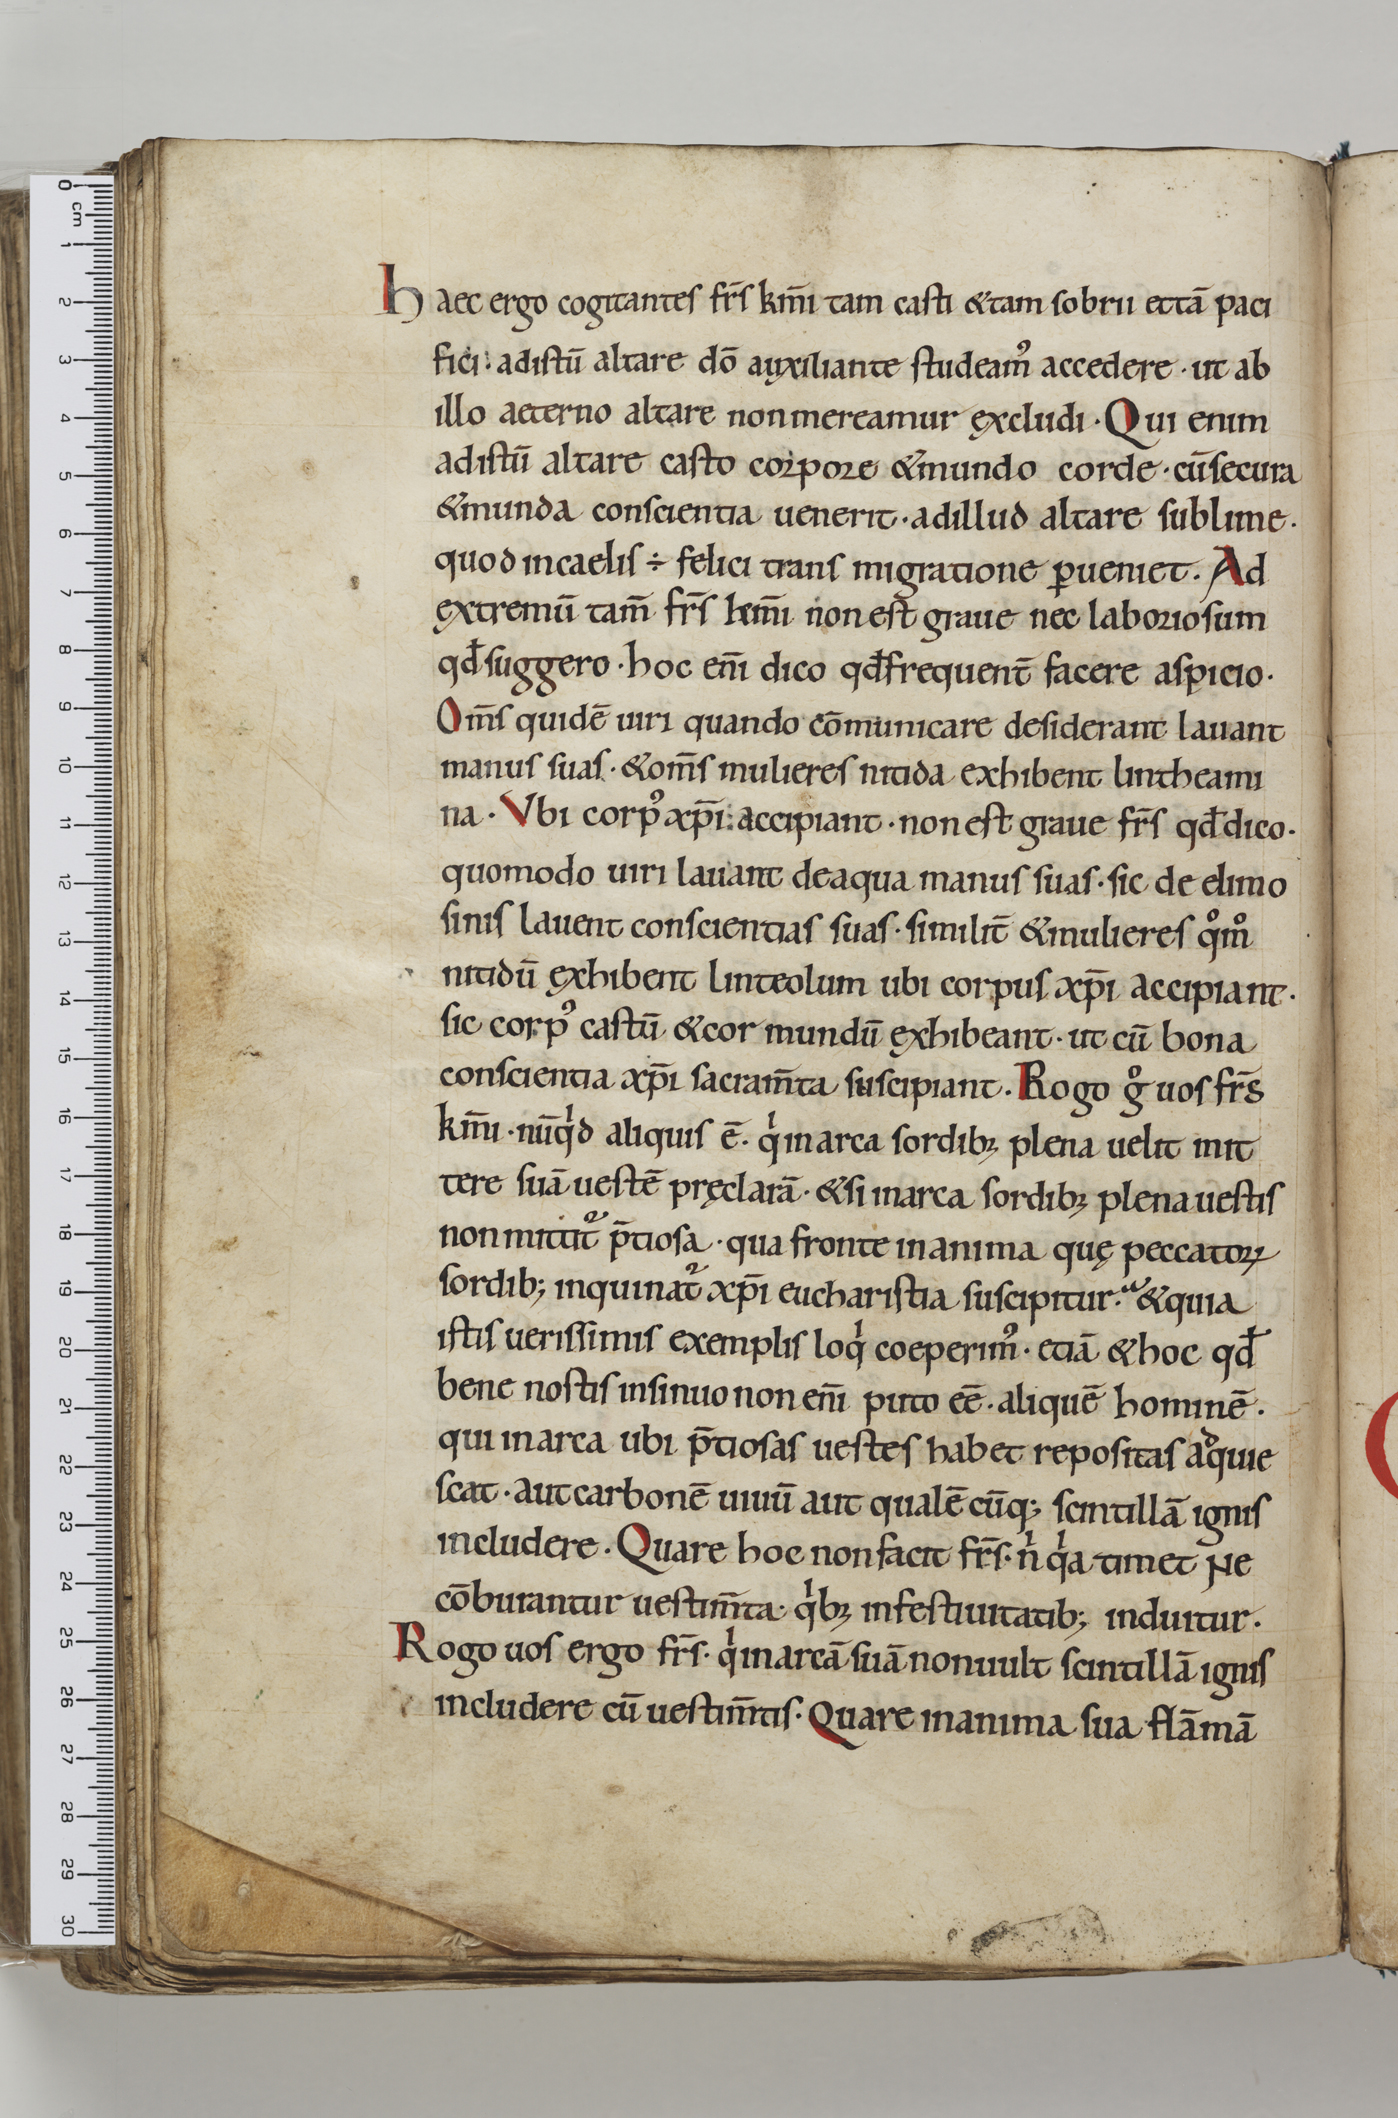 haec ergo cogitantes fr̄s km̄i tam casti &tam sobrii ettā paci
fici: adistū altare dō auxiliante studeamꝰ accedere · ut ab
illo aeterno altare nonmereamur excludi · Qui enim
adistū altare casto corpore &mundo corde · cūsecura
&munda conscientia uenerit · adillud altare sublime ·
quod incaelis ÷ felici trans migratione ꝑueniet. Ad
extremū tam̄ fr̄s km̄i non est graue nec laboriosum
qđsuggero · hoc eni̅ dico qđfrequent̄ facere aspicio ·
Om̄s quidē uiri quando cōmunicare desiderant lauant
manus suas · &om̄s mulieres nitida exhibent lintheami
na · Vbi corpꝰ xp̄i: accipiant · non est graue fr̄s qđdico ·
quomodo uiri lauant deaqua manus suas · sic de elimo
sinis lauent conscientias suas · similit̄ &mulieres qͦmͦ
nitidū exhibent linteolum ubi corpus xp̄i accipiant ·
sic corpꝰ castū &cor mundū exhibeant · ut cū bona
conscientia xp̄i sacram̄ta suscipiant. Rogo gͦ uos fr̄s
km̄i · nūqͥd aliquis ē · qͥinarca sordibꝫ plena uelit mit
tere suā uestē pręclarā · &si inarca sordibꝫ plena uestis
nonmittit᷑ p̄tiosa · qua fronte inanima quę peccatoꝝ
sordib; inquinat᷑ xp̄i eucharistia suscipitur · &quia
istis uerissimis exemplis loqͥ coeperimꝰ · etiā &hoc qđ
bene nostis insinuo non eni̅ puto eē · aliquē hominē ·
qui inarca ubi p̄tiosas uestes habet repositas adquie
scat · aut carbonē uiuū aut qualē cūq; scintillā ignis
includere · Quare hoc nonfacit fr̄s · nͥ qͥa timet Ne
cōburantur uestim̄ta · qͥbꝫ infestiuitatib; induitur ·
Rogo uos ergo fr̄s · qͥinarcā suā nonuult scintillā ignis
includere cū uestim̄tis · Quare inanima sua flāmā
0 cm 1 2 3 4 5 6 7 8 9 10 11 12 13 14 15 16 17 18 19 20 21 22 23 24 25 26 27 28 29 30